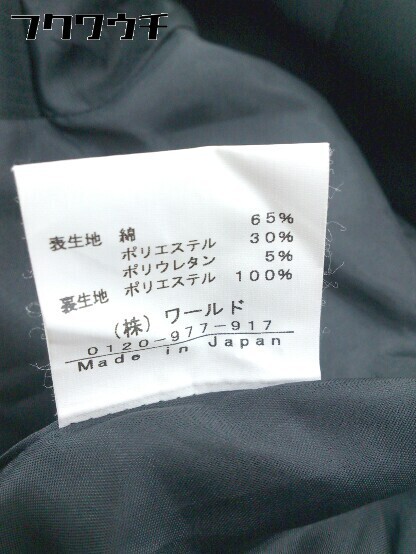 フクワウチ
表生地 綿 65%
ポリエステル 30%
ポリウレタン 5%
裏生地 ポリエステル 100%
(株) ワールド
0120-977-917
Made in Japan